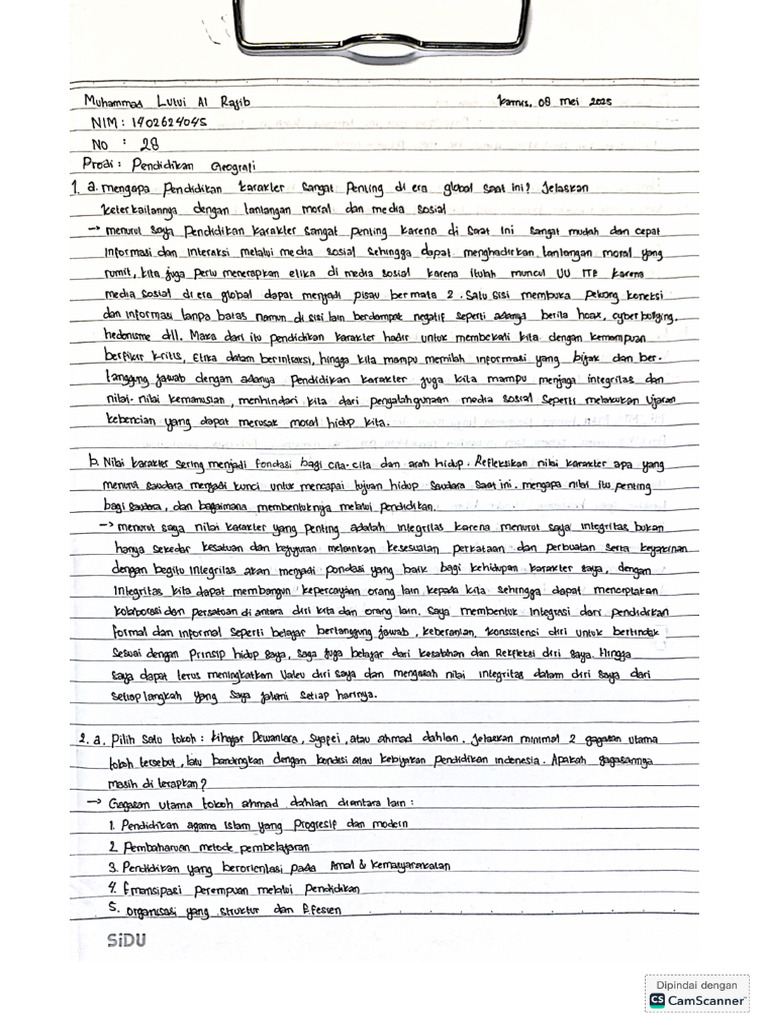 Muhammad Lutvi Al Rajib Kamis, 08 Mei 2025
NIM : 1402624045
No : 28
Prodi : Pendidikan Geografi
1. a. mengapa Pendidikan karakter sangat Penting di era global saat ini? Jelaskan
keterkaitannya dengan tantangan moral dan media sosial
→ menurut saya Pendidikan karakter sangat penting karena di saat ini sangat mudah dan cepat
informasi dan interaksi melalui media sosial sehingga dapat menghadirkan tantangan moral yang
rumit, kita juga perlu menerapkan etika di media sosial karena itulah muncul UU ITE karena
media sosial di era global dapat menjadi pisau bermata 2. Satu sisi membuka peluang koneksi
dan informasi tanpa batas namun di sisi lain berdampak negatif seperti adanya berita hoax, cyberbullying,
hedonisme dll. Maka dari itu pendidikan karakter hadir untuk membekali kita dengan kemampuan
berfikir kritis, etika dalam berinteraksi, hingga kita mampu memilah informasi yang bijak dan ber-
tanggung jawab dengan adanya pendidikan karakter juga kita mampu menjaga integritas dan
nilai-nilai kemanusian, menhindari kita dari penyalahgunaan media sosial seperti melakukan ujaran
kebencian yang dapat merusak moral hidup kita.
b. Nilai karakter sering menjadi fondasi bagi cita-cita dan arah hidup. Refleksikan nilai karakter apa yang
menurut saudara menjadi kunci untuk mencapai tujuan hidup saudara saat ini. mengapa nilai itu penting
bagi saudara, dan bagaimana membentuknya melalui pendidikan.
→ menurut saya nilai karakter yang penting adalah integritas karena menurut saya integritas bukan
hanya sekedar kesatuan dan kejujuran melainkan kesesuaian perkataan dan perbuatan serta keyakinan
dengan begitu integritas akan menjadi pondasi yang baik bagi kehidupan karakter saya, dengan
integritas kita dapat membangun kepercayaan orang lain kepada kita sehingga dapat menciptakan
kolaborasi dan persatuan di antara diri kita dan orang lain. Saya membentuk integrasi dari pendidikan
formal dan informal seperti belajar bertanggung jawab, keberanian, konsistensi diri untuk bertindak
sesuai dengan prinsip hidup saya, saya juga belajar dari kesalahan dan Refleksi diri saya. Hingga
saya dapat terus meningkatkan Valeu diri saya dan mengasah nilai integritas dalam diri saya dari
setiap langkah yang saya jalani setiap harinya.
2. a. Pilih satu tokoh : Kihajar Dewantara, Syafei, atau ahmad dahlan. Jelaskan minimal 2 gagasan utama
tokoh tersebut, lalu bandingkan dengan kondisi atau kebijakan pendidikan indonesia. Apakah gagasannya
masih di terapkan?
→ Gagasan utama tokoh ahmad dahlan diantara lain :
1. Pendidikan agama islam yang Progresif dan modern
2. Pembaharuan metode pembelajaran
3. Pendidikan yang berorientasi pada Amal & Kemasyarakatan
4. Emansipasi perempuan melalui pendidikan
5. Organisasi yang struktur dan Efesien
SiDU
Dipindai dengan
CS CamScanner